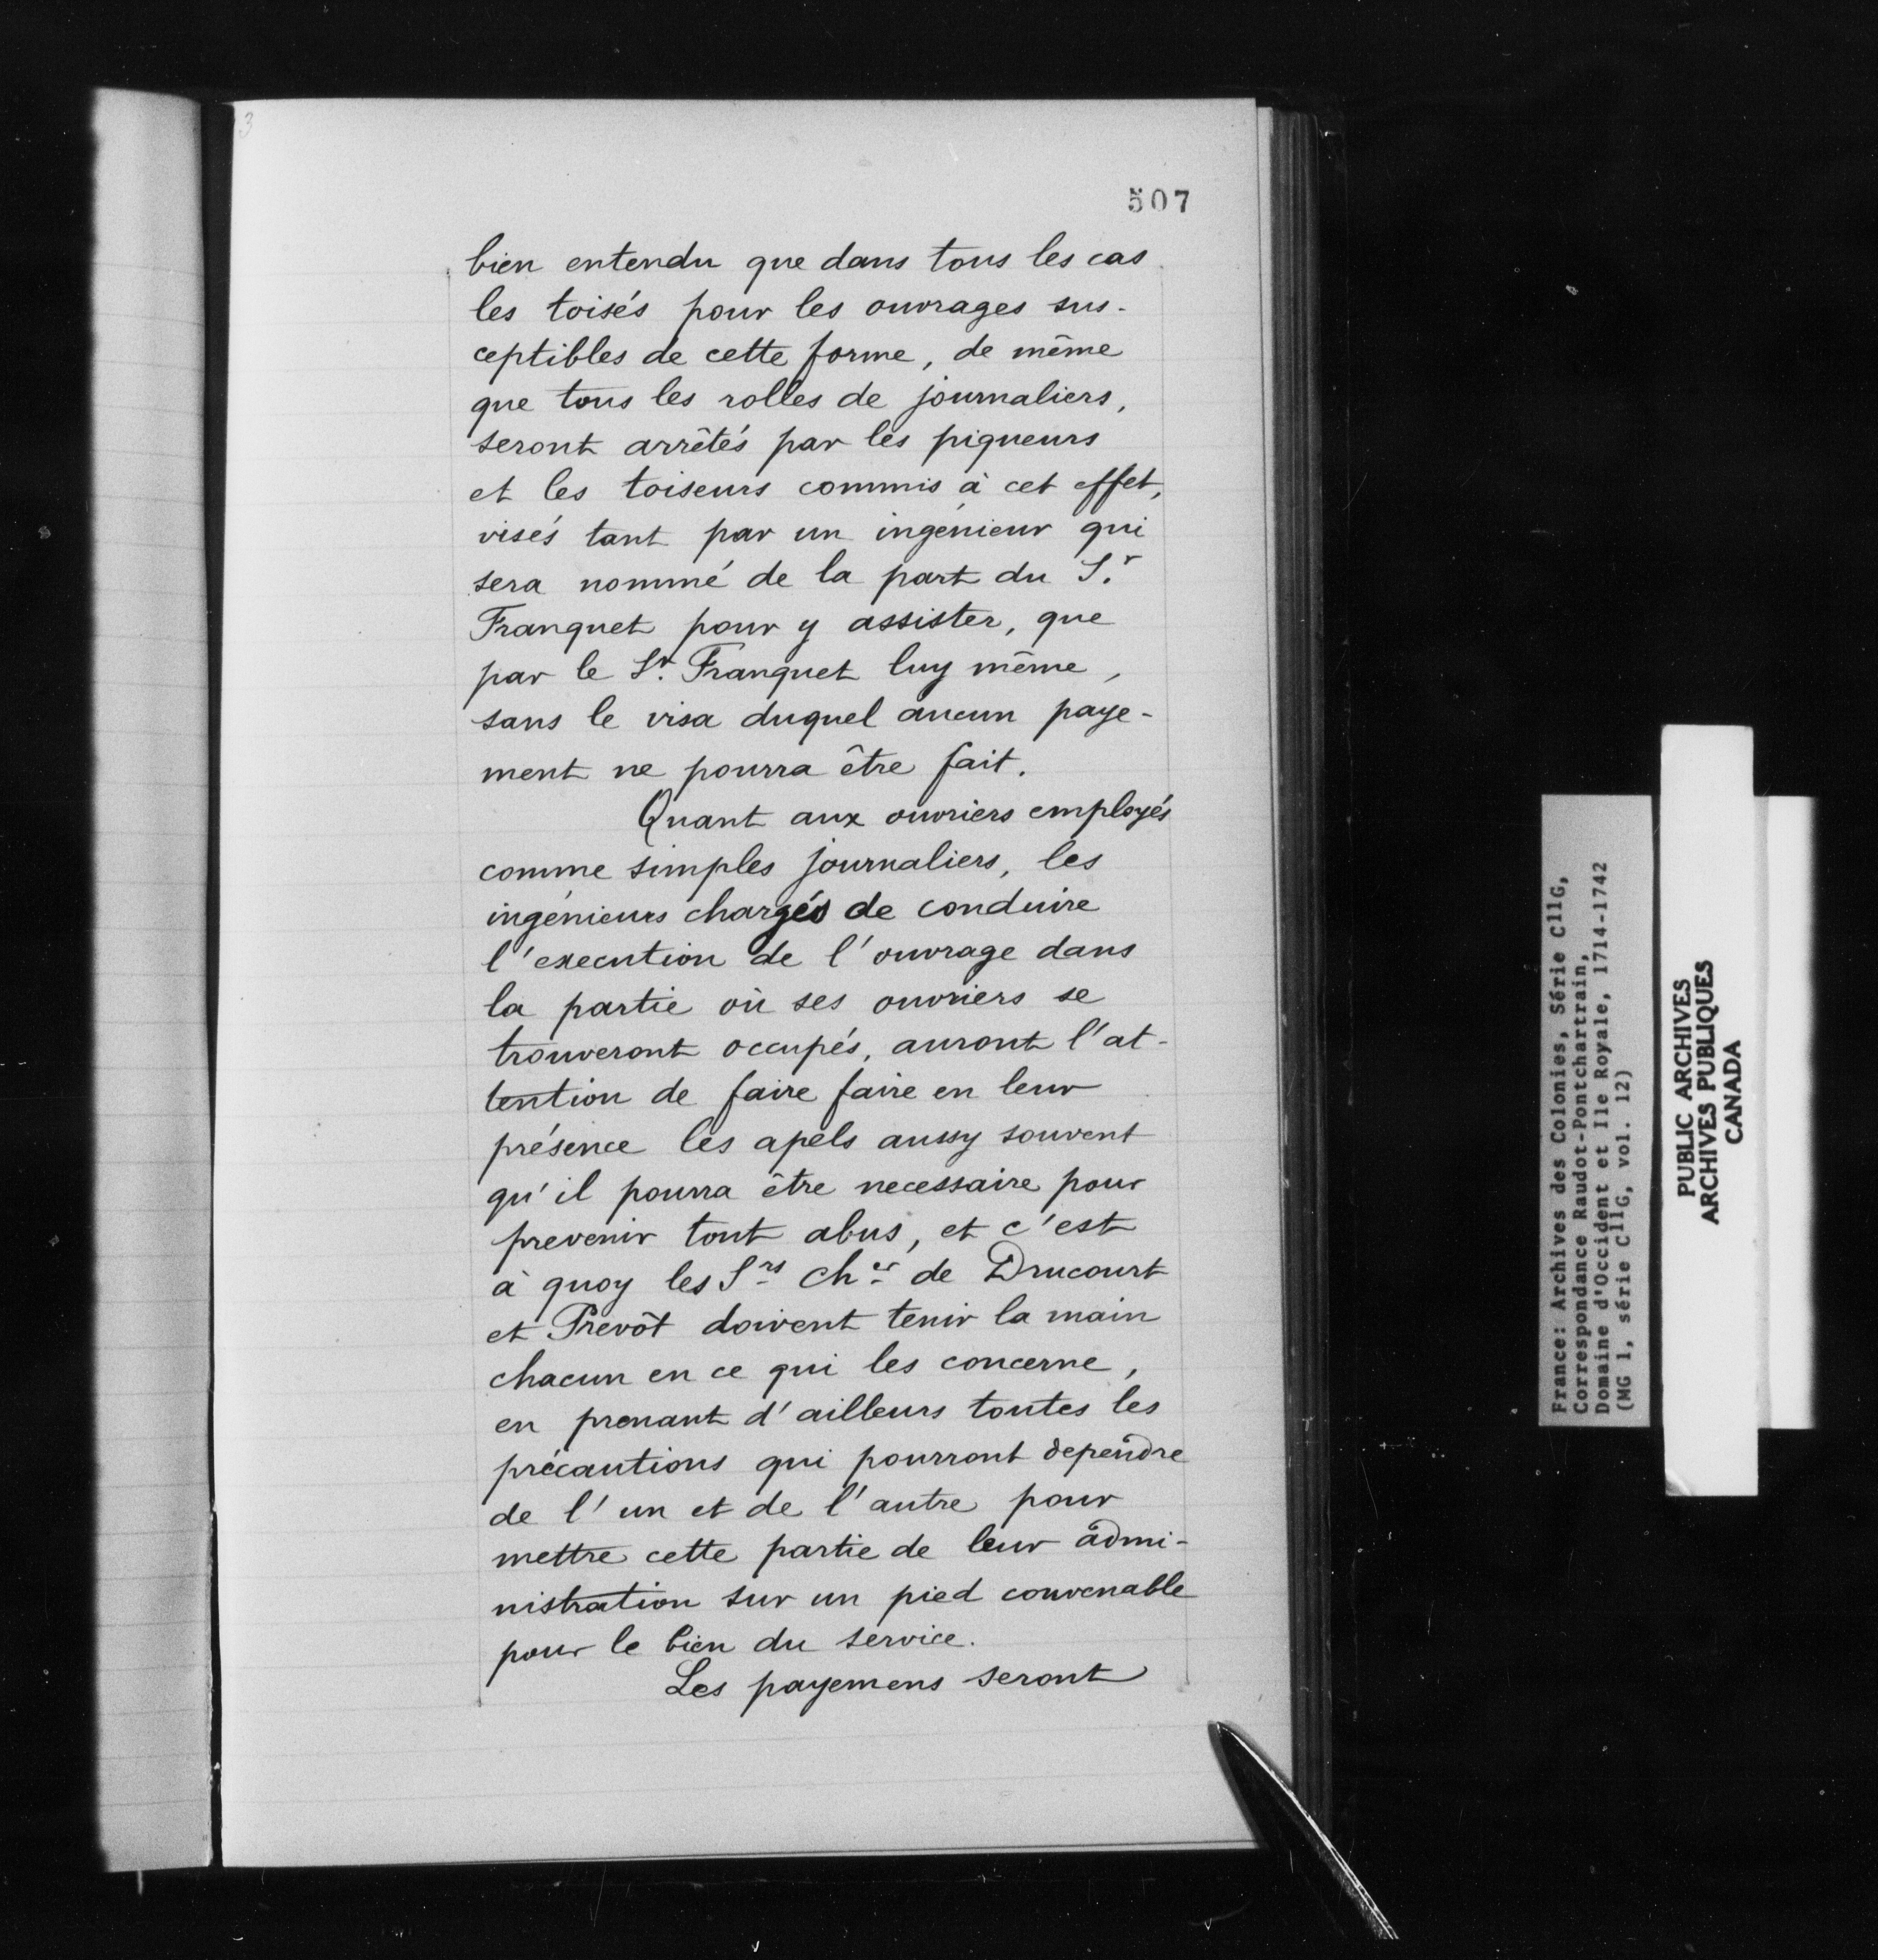 3
507
bien entendu que dans tous les cas
les toisés pour les ouvrages sus-
ceptibles de cette forme, de même
que tous les rolles de journaliers,
seront arrêtés par les piqueurs
et les toiseurs commis à cet effet,
visés tant par un ingénieur qui
sera nommé de la part du S.r
Franquet pour y assister, que
par le Sr. Franquet luy même,
sans le visa duquel aucun paye-
ment ne pourra être fait.
Quant aux ouvriers employés
comme simples journaliers, les
ingénieurs chargés de conduire
l'execution de l'ouvrage dans
la partie où ses ouvriers se
trouveront occupés, auront l'at-
tention de faire faire en leur
présence les apels aussy souvent
qu'il pourra être necessaire pour
prevenir tout abus, et c'est
à quoy les Srs Cher de Drucourt
et Prevôt doivent tenir la main
chacun en ce qui les concerne,
en prenant d'ailleurs toutes les
précautions qui pourront dependre
de l'un et de l'autre pour
mettre cette partie de leur admi-
nistration sur un pied convenable
pour le bien du service.
Les payemens seront
France: Archives des Colonies, Série C11G,
Correspondance Raudot-Pontchartrain,
Domaine d'Occident et Ile Royale, 1714-1742
(MG 1, série C11G, vol. 12)
PUBLIC ARCHIVES
ARCHIVES PUBLIQUES
CANADA